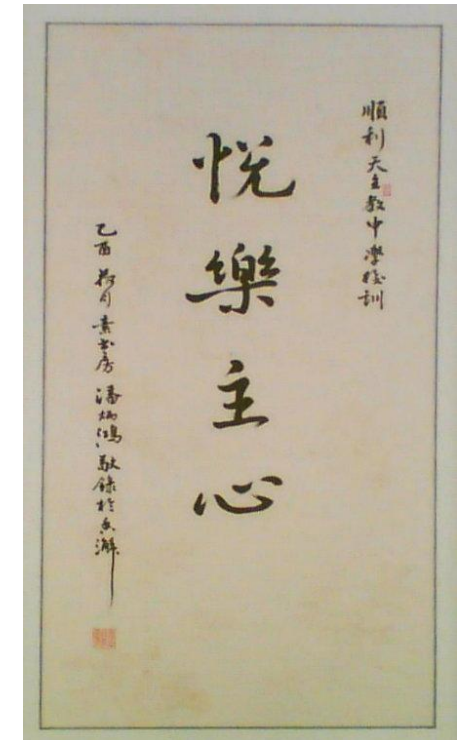 順利天主教中學校訓
悅樂主心
乙酉荷月素心房潘炳鴻敬錄於香澥